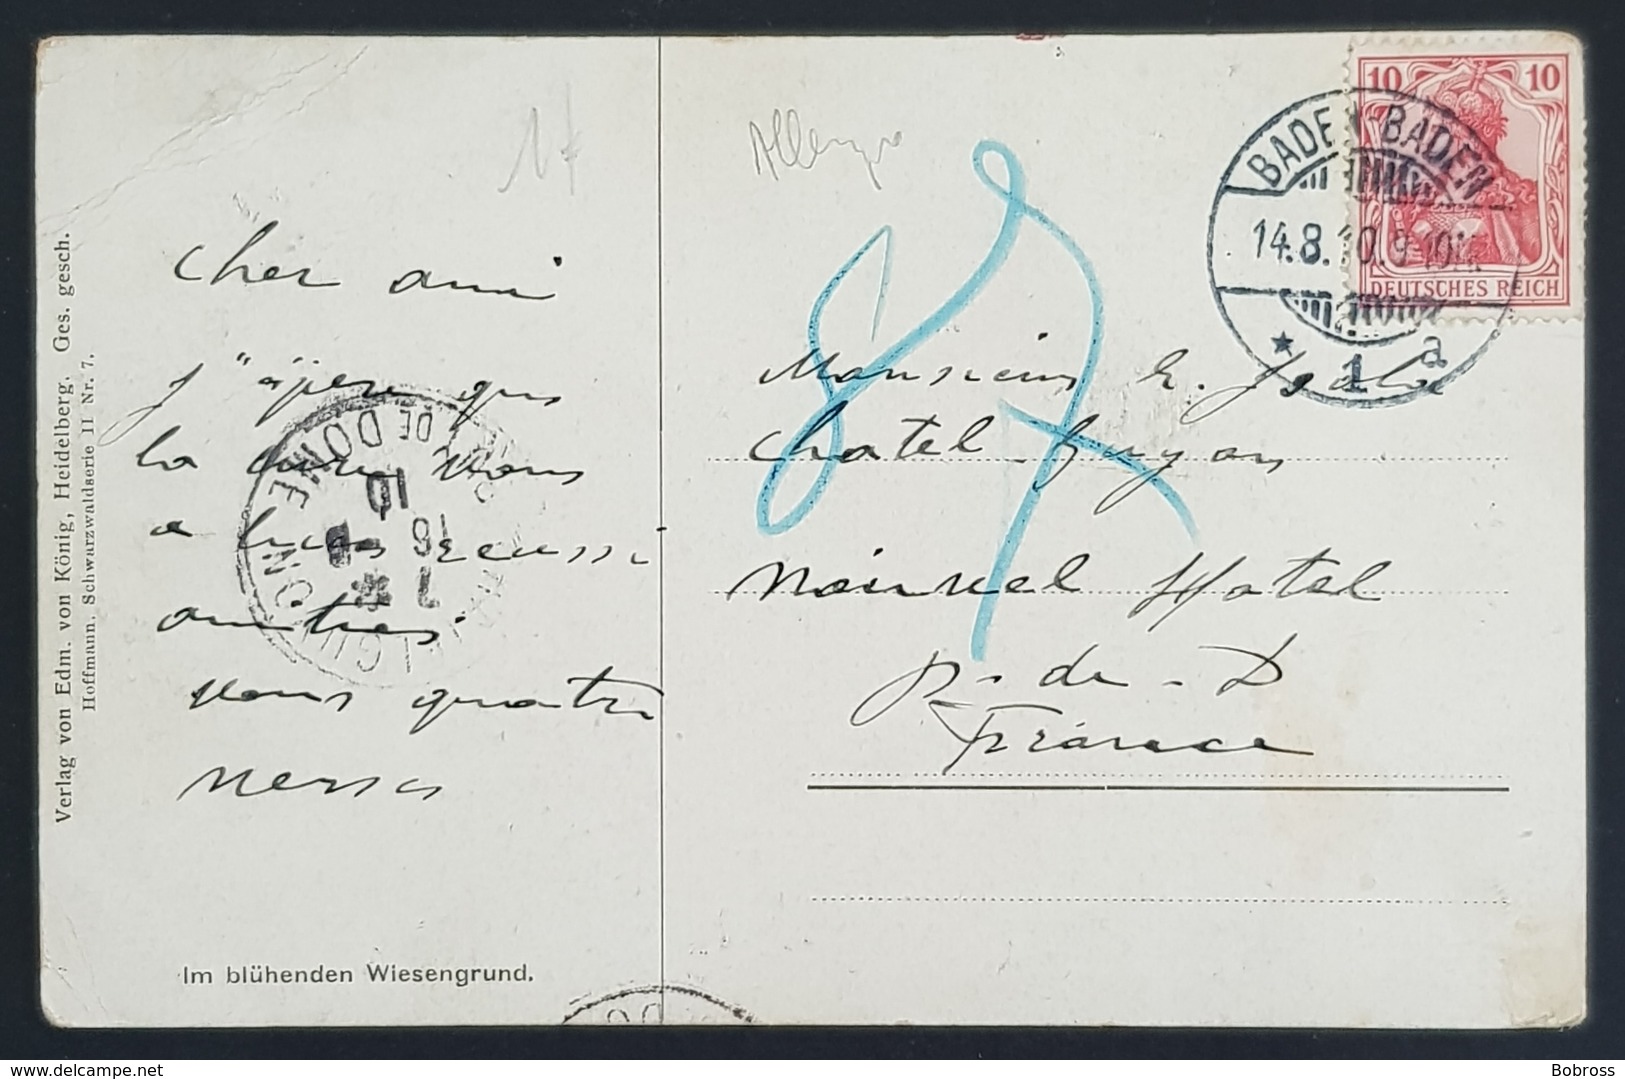 Verlag von Edm. von König, Heidelberg. Ges. gesch.
Hoffmann. Schwarzwaldserie II Nr. 7.
1f
cher ami
j"espère que
la cure vous
a bien réussi
amitiés
vous quatre
Im blühenden Wiesengrund.
PUY DE DOME
10
16 -8
7 *
CHATELGUYON
87
10 10
DEUTSCHES REICH
BADEN-BADEN
14.8.10.9-10N.
* 1 a
Monsieur E.
Chatel Guyon
Nouvel Hotel
P. de - D
France
delcampe.net
Bobross